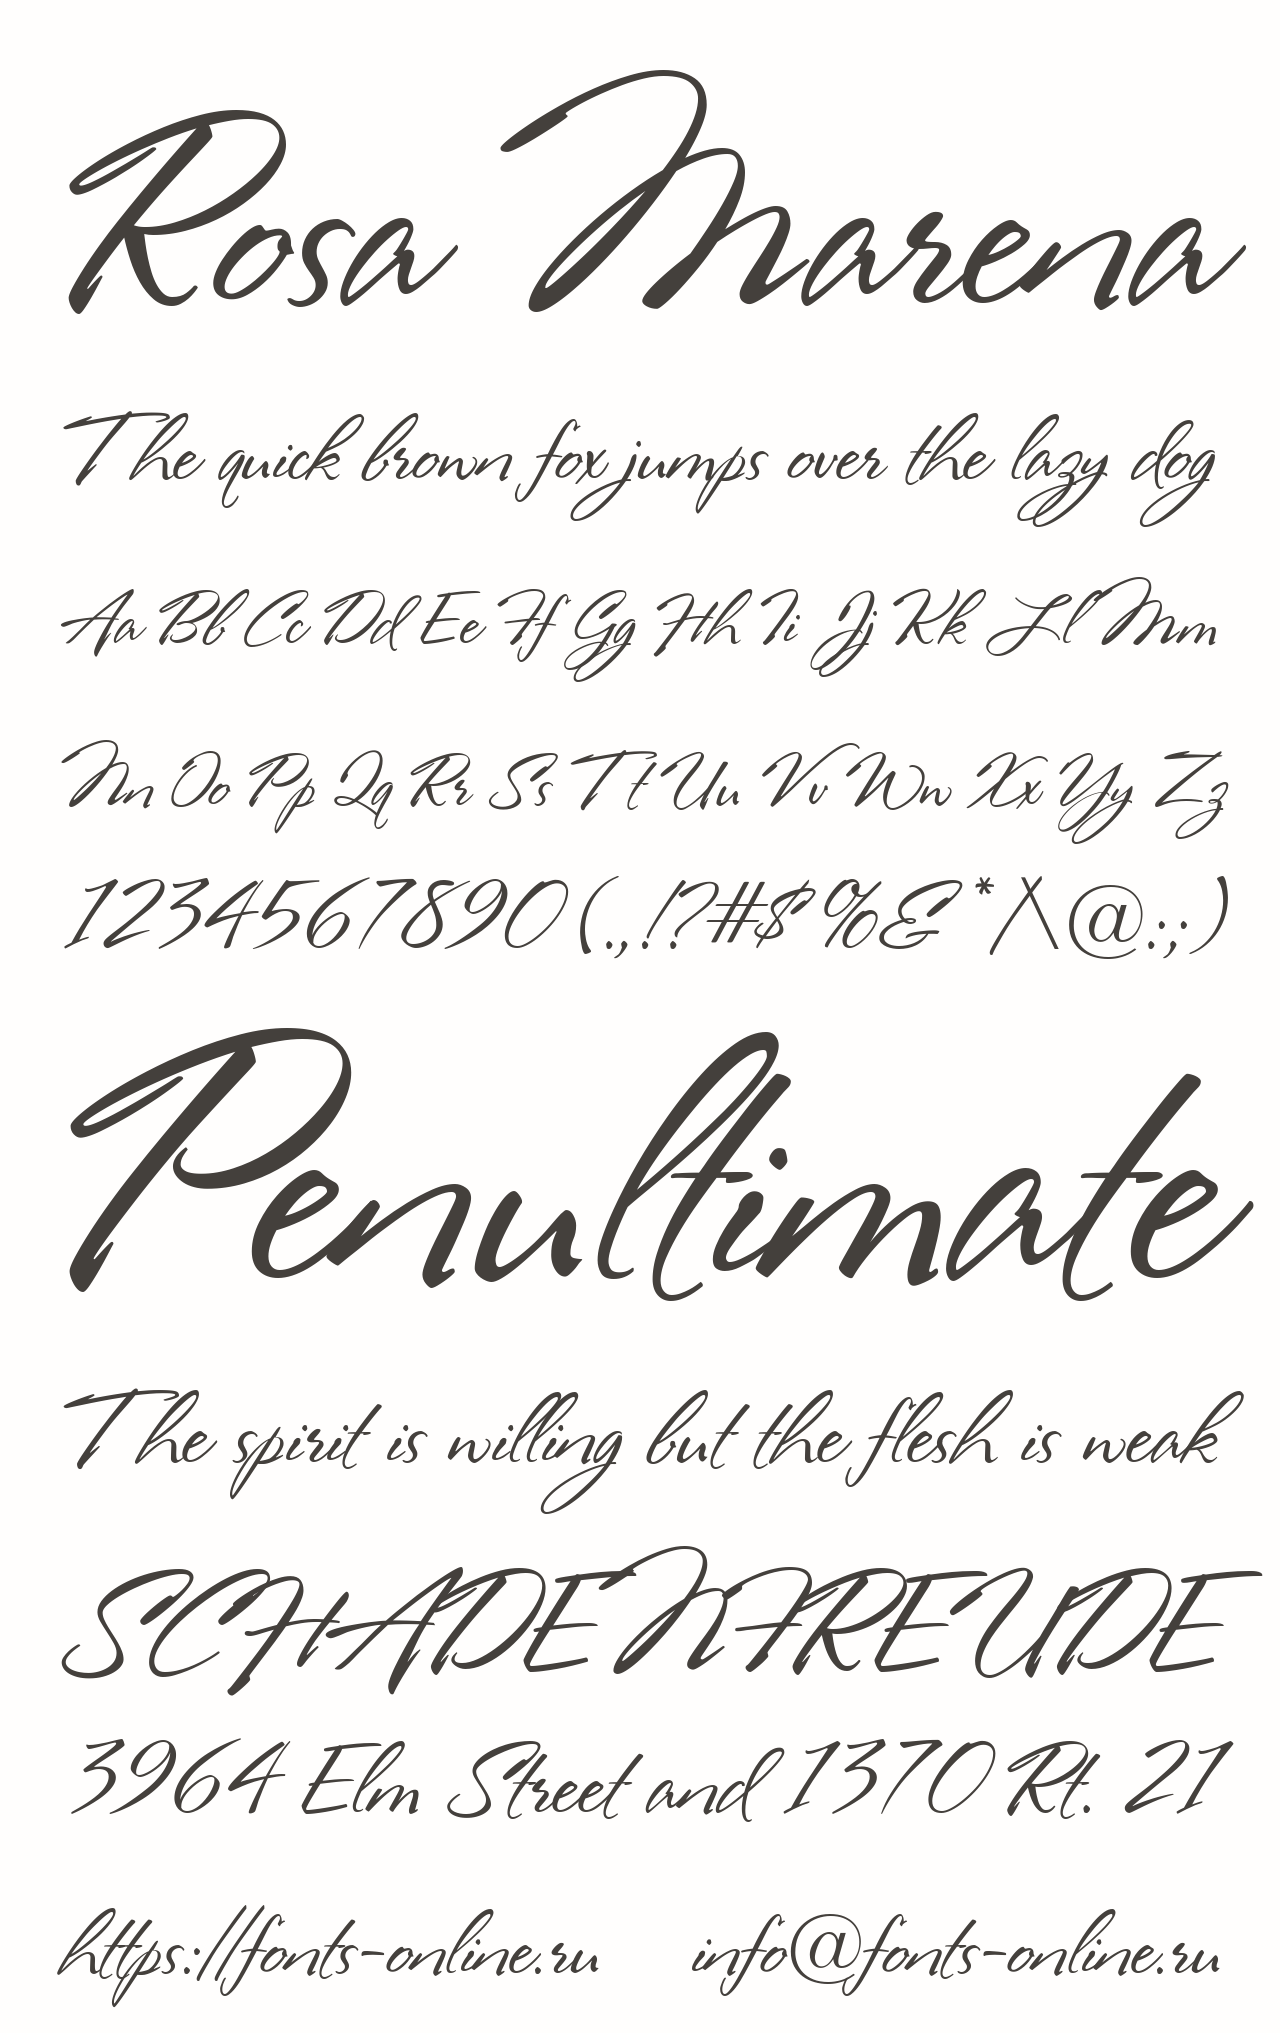 Rosa Marena
The quick brown fox jumps over the lazy dog
Aa Bb Cc Dd Ee Ff Gg Hh Ii Jj Kk Ll Mm
Nn Oo Pp Qq Rr Ss Tt Uu Vv Ww Xx Yy Zz
1234567890(.,!?#$%&*/\@:;)
Penultimate
The spirit is willing but the flesh is weak
SCHADENFREUDE
3964 Elm Street and 1370 Rt. 21
https://fonts-online.ru info@fonts-online.ru